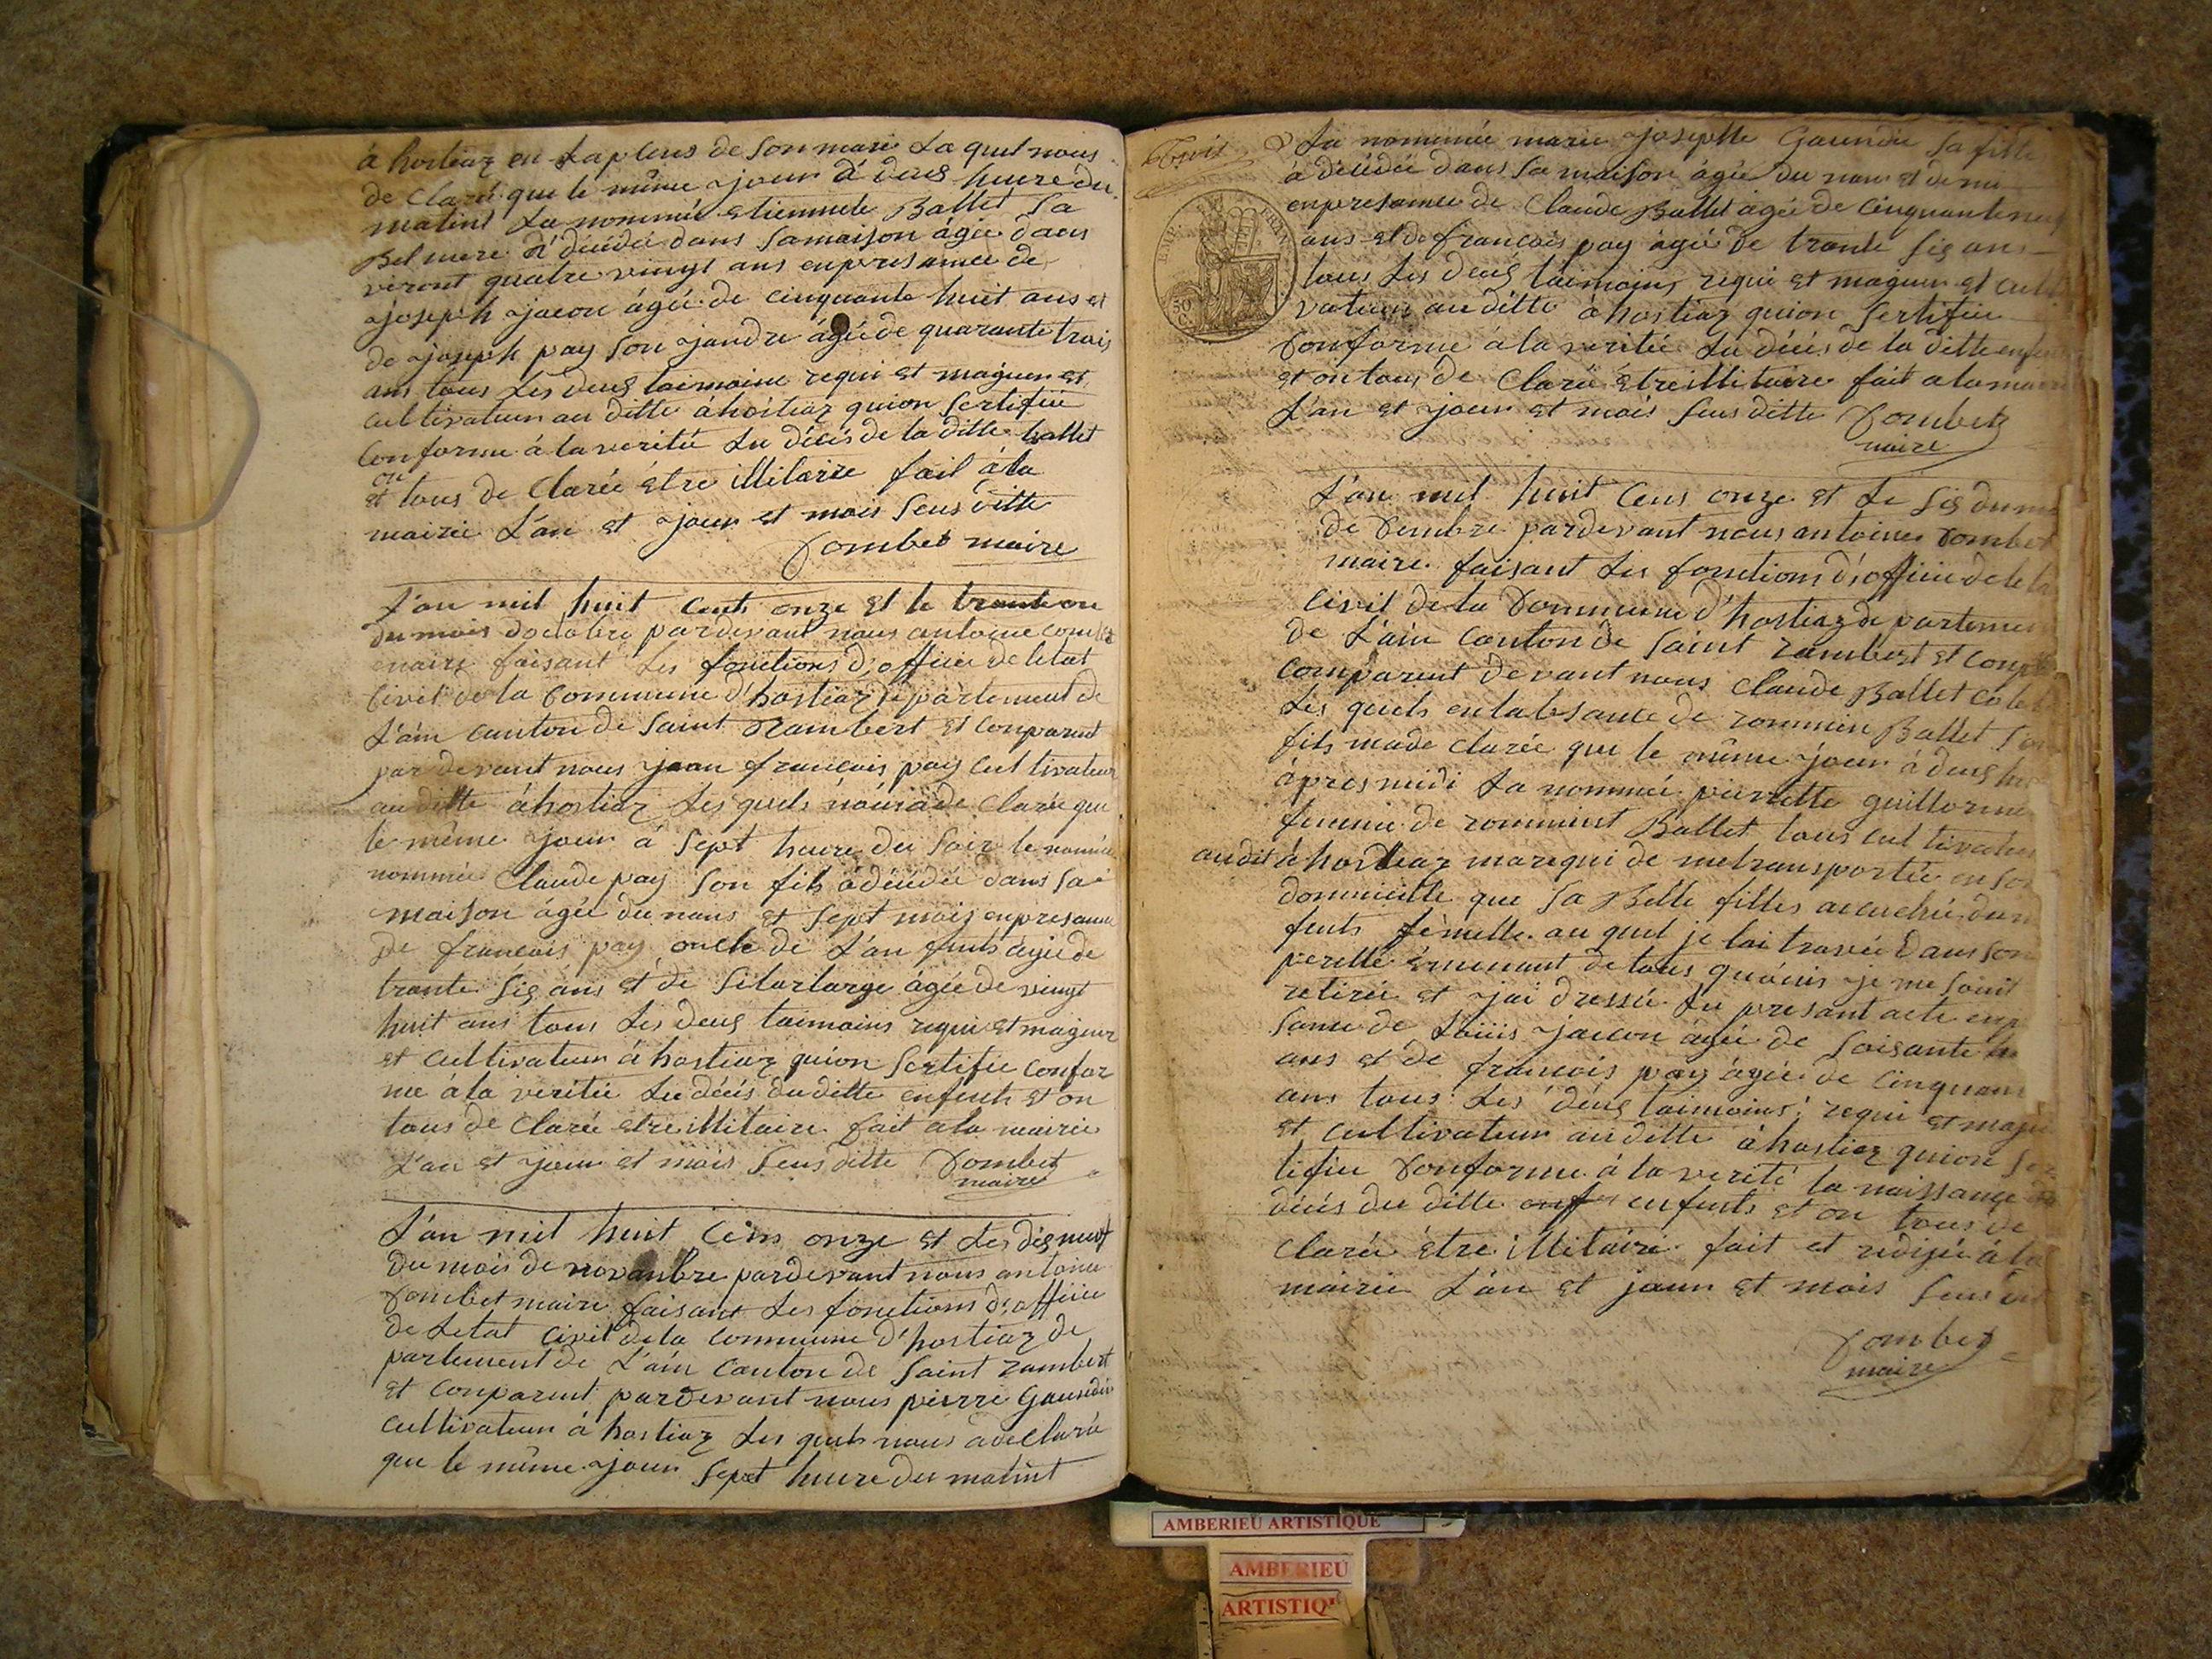 à hostiaz en laplens de son mari Le quel nous
de Claré que le même jour à deus heure du
matint La nommée etiennete Ballet Sa
Bel mere à décédée dans Samaison agée daen
viront quatre vingt ans enpresamce de
joseph jacon agée de cinquante huit ans et
de joseph pay son jandre agée de quarante trois
ans tous Les deus taimoine requi et majeur et
cultivateur au ditte à hostiaz quion Sertifiée
Conforme à la verité Lu décis de la ditte ballet
on
et tous de Clarée être illitaire fait à la
mairie L'an et jour et mois Seus ditte
Combet maire
L'an mil huit cents onze et le trante on
du mois doctobre pardevant nous antoine combet
maire faisant Les fonctions d'officie de letat
Civil de la Commune d'hostiaz de partement de
L'ain canton de Saint Rambert et conparent
par devant nous jean francois pay cultivateur
au ditte à hostiaz Les quels nous a de Clarée que
le même jour a Sept heure du Soir le nomée
nommée Claude pay Son fils à décédée dans Sa
maison agée du nans et Sept mois enpresamce
de francois pay oncle de L'an fents agée de
trante Sis ans et de agée de vingt
huit ans tous Les deus taimoins requi et majeur
et cultivateur à hostiaz quion Sertifiee confor
me à la veritée Lu décis du ditte enfents et on
tous de Clarée etre illitaire fait a la mairie
L'an et jour et mois Seus ditte Combet
maire
L'an mil huit Cens onze et Les dis neuf
du mois de novanbre pardevant nous antoine
Combet maire faisant Les fonctions d'officie
de Letat Civil dela Commune d'hostiaz de
partement de L'ain Canton de Saint rambert
et Conparent pardevant nous pierre Gaundin
cultivateur à hostiaz Les quels nous adeClaré
que le même jour Sept heure du matint
La nommée marie josephte Gaundin Sa fille
à décédée dans Sa maison agée du nans et demi
enpresamce de Claude Ballet agée de Cinquante neuf
ans et de francois pay agée de trante Sis ans
tous Les deus taimoins requi et majeur et cult
vateur au ditte à hostiaz quion Sertifiée
Conforme à la veritée Lu décis de la ditte enfents
et on tous de Clarée être illitaire fait a la mairie
L'an et jour et mois Seus ditte Combet
maire
L'an mil huit Cens onze et Le Sis du m
de Cembre pardevant nous antoine Combet
maire faisant Les fonctions d'officie de le
Civil de la Commune d'hostiaz de partemen
de L'ain Canton de Saint rambert et conp
comparent devant nous Claude Ballet
Les quels en labsance de rommin Ballet Son
fils made Clarée que le même jour à deus heu
àpres midi La nommée pierrette guillerme
femme de rommint Ballet tous cultivateu
audit à hostiaz marequi de metransportée en son
domicille que Sa Belle filles acuchée dun
fents fémelle au quel je lai travée Dans son
quacis je me Souit
retirée et jai dressée Lu presant acte enp
same de Louis jacon agée de Soisante
ans et de francois pay agée de Cinquan
ans tous Les deus taimoins requi et maje
et cultivateur au ditte à hostiaz quion Ser
tifiee Conforme à la verité la naissance
décis du ditte enfents et on tous de
Clarée être illitairé fait et redijée à la
mairie L'an et jour et mois Seus
Combet
maire
AMBERIEU ARTISTIQUE
AMBERIEU
ARTISTIQ